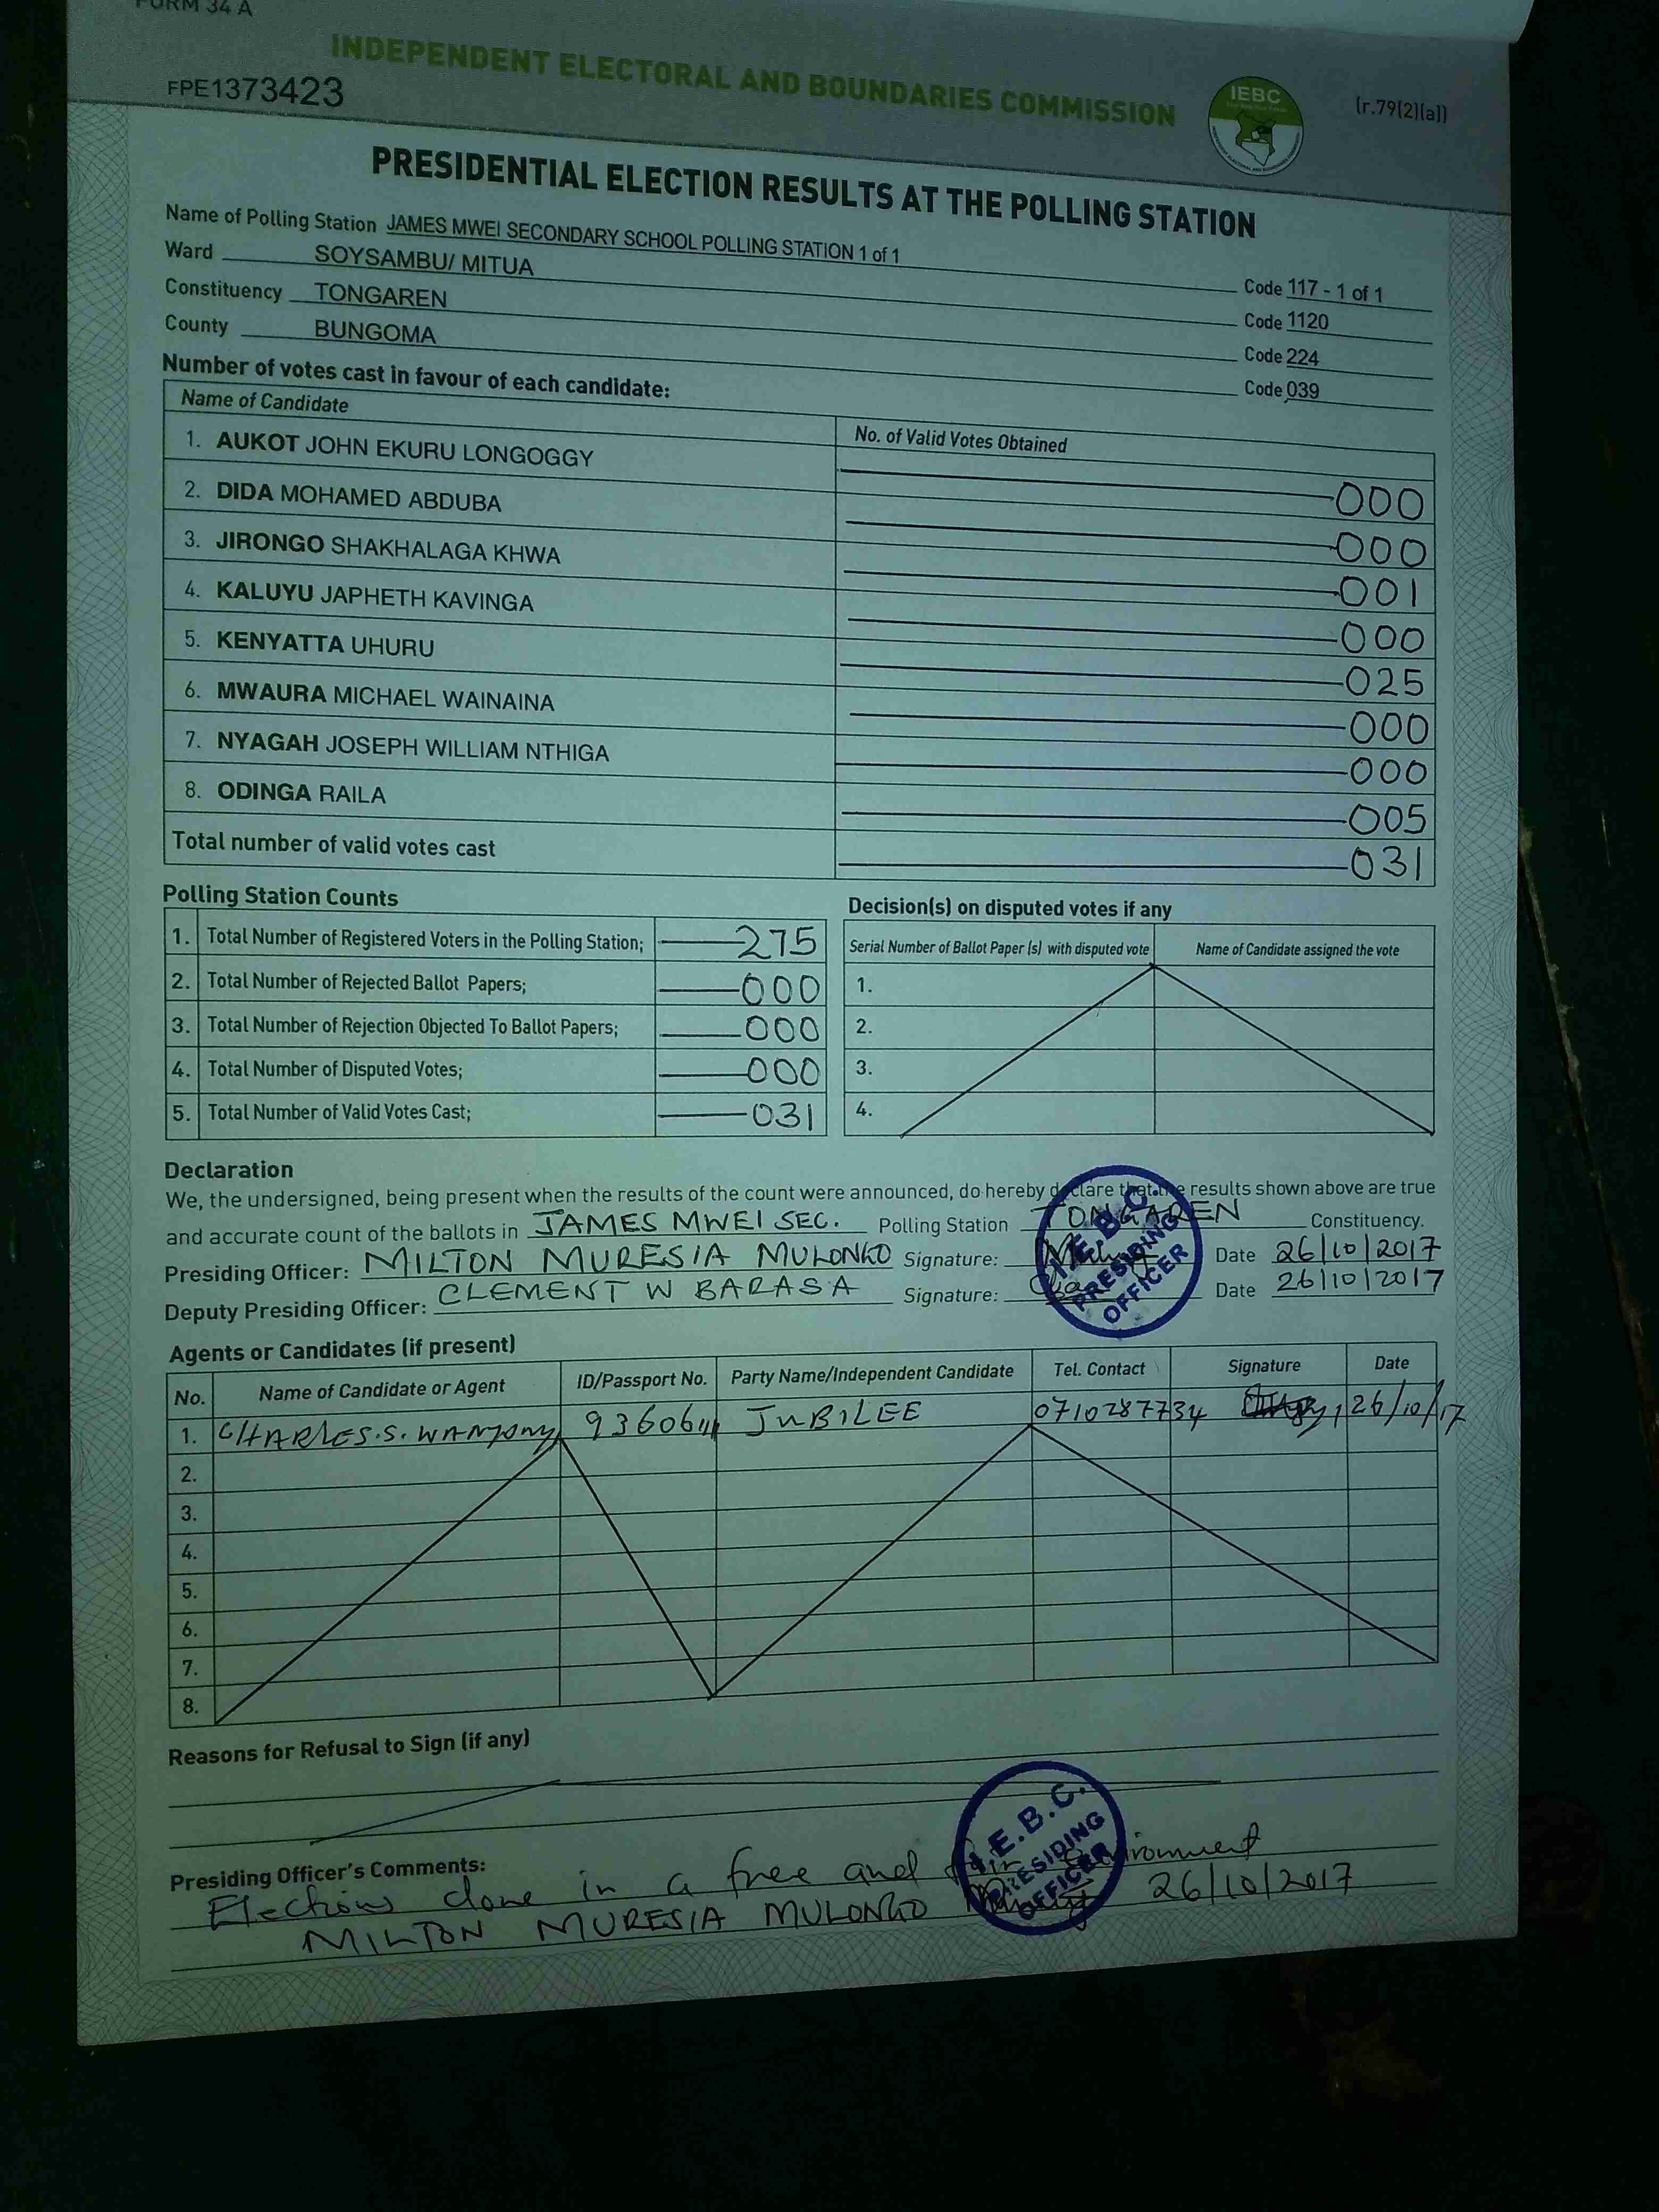 FORM 34 A
INDEPENDENT ELECTORAL AND BOUNDARIES COMMISSION
FPE1373423
IEBC
(r.79(2)(a))
PRESIDENTIAL ELECTION RESULTS AT THE POLLING STATION
Name of Polling Station JAMES MWEI SECONDARY SCHOOL POLLING STATION 1 of 1 Code 117 - 1 of 1
Ward SOYSAMBU/ MITUA Code 1120
Constituency TONGAREN Code 224
County BUNGOMA Code 039
Number of votes cast in favour of each candidate:
Name of Candidate No. of Valid Votes Obtained
1. AUKOT JOHN EKURU LONGOGGY 000
2. DIDA MOHAMED ABDUBA 000
3. JIRONGO SHAKHALAGA KHWA 001
4. KALUYU JAPHETH KAVINGA 000
5. KENYATTA UHURU 025
6. MWAURA MICHAEL WAINAINA 000
7. NYAGAH JOSEPH WILLIAM NTHIGA 000
8. ODINGA RAILA 005
Total number of valid votes cast 031
Polling Station Counts
1. Total Number of Registered Voters in the Polling Station; 275
2. Total Number of Rejected Ballot Papers; 000
3. Total Number of Rejection Objected To Ballot Papers; 000
4. Total Number of Disputed Votes; 000
5. Total Number of Valid Votes Cast; 031
Decision(s) on disputed votes if any
Serial Number of Ballot Paper (s) with disputed vote Name of Candidate assigned the vote
1.
2.
3.
4.
Declaration
We, the undersigned, being present when the results of the count were announced, do hereby declare that the results shown above are true
and accurate count of the ballots in JAMES MWEI SEC. Polling Station TONGAREN Constituency.
Presiding Officer: MILTON MURESIA MULONGO Signature: Date 26/10/2017
Deputy Presiding Officer: CLEMENT W BARASA Signature: Date 26/10/2017
I.E.B.C. PRESIDING OFFICER
Agents or Candidates (if present)
No. Name of Candidate or Agent ID/Passport No. Party Name/Independent Candidate Tel. Contact Signature Date
1. CHARLES.S. JUBILEE 0710287734 26/10/17
2.
3.
4.
5.
6.
7.
8.
Reasons for Refusal to Sign (if any)
Presiding Officer's Comments:
Elections done in a free and fair environment
MILTON MURESIA MULONGO 26/10/2017
I.E.B.C. PRESIDING OFFICER